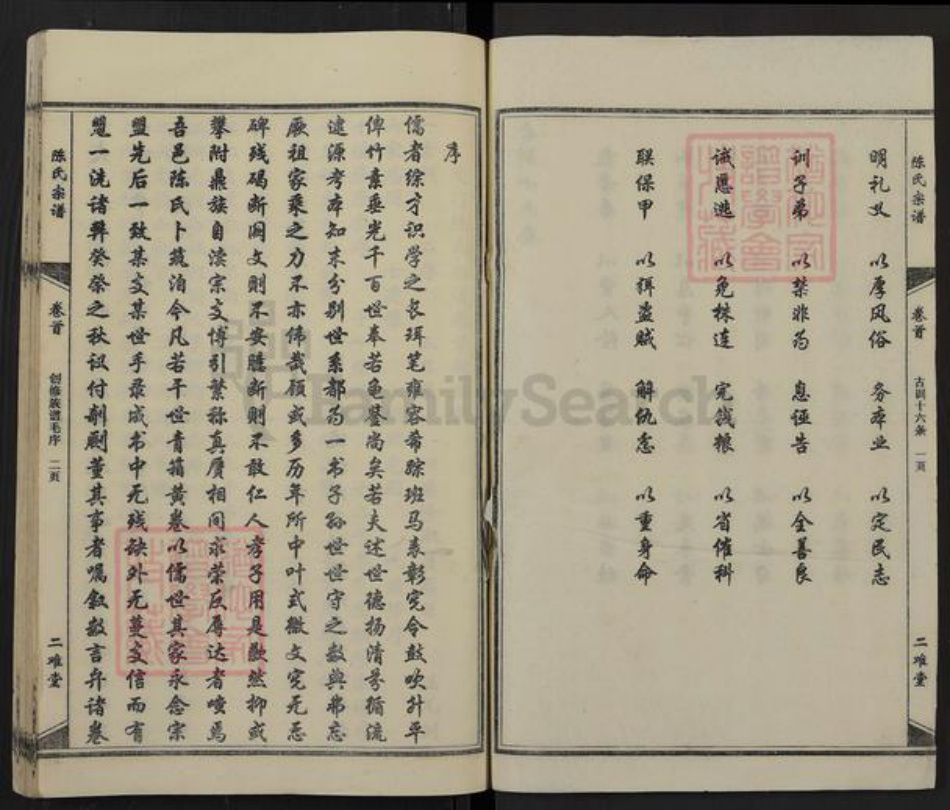 陈氏宗谱
卷首
古训十六条
一页
二难堂
明礼义 以厚风俗 务本业 以定民志
训子弟 以禁非为 息诬告 以全善良
诫匿逃 以免株连 完钱粮 以省催科
联保甲 以弭盗贼 解仇忿 以重身命
序
儒者综才识学之长珥笔雍容希踪班马表彰宪令鼓吹升平
俾竹素垂光千百世奉若龟鉴尚矣若夫述世德扬清芬循流
逮源考本知末分别世系都为一书子孙世世守之数典弗忘
厥祖家乘之力不亦伟哉顾或多历年所中叶式微文宪无忌
碑残碣断阅文则不安臆断则不敢仁人孝子用是歉然抑或
攀附鼎族自渎宗支博引繁称真赝相间求荣反辱达者嗤焉
吾邑陈氏卜筑泊今凡若干世青箱黄卷以儒世其家永念宗
盟先后一致某支某世手录成书中无残缺外无蔓支信而有
一洗诸弊癸癸之秋议付剞劂董其事者嘱叙数言弁诸卷
陈氏宗谱
卷首
创修族谱毛序
二页
二难堂
FamilySearch